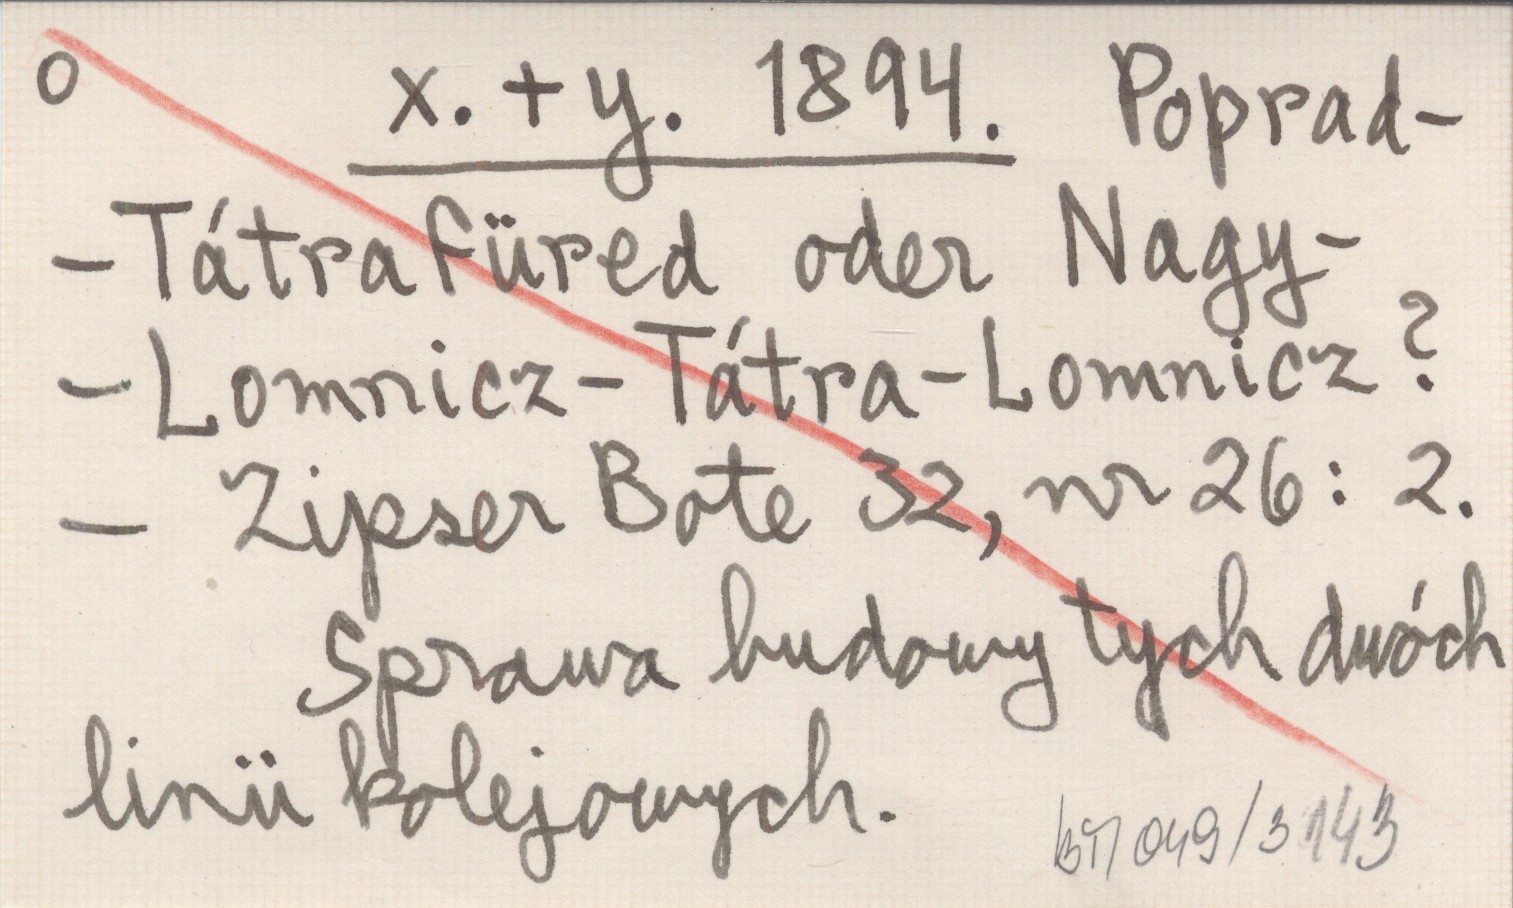 o x. + y. 1894. Poprad-
- Tátrafüred oder Nagy-
- Lomnicz - Tátra - Lomnicz?
- Zipser Bote 32, nr 26: 2.
Sprawa budowy tych dwóch
linii kolejowych.
049/3 143